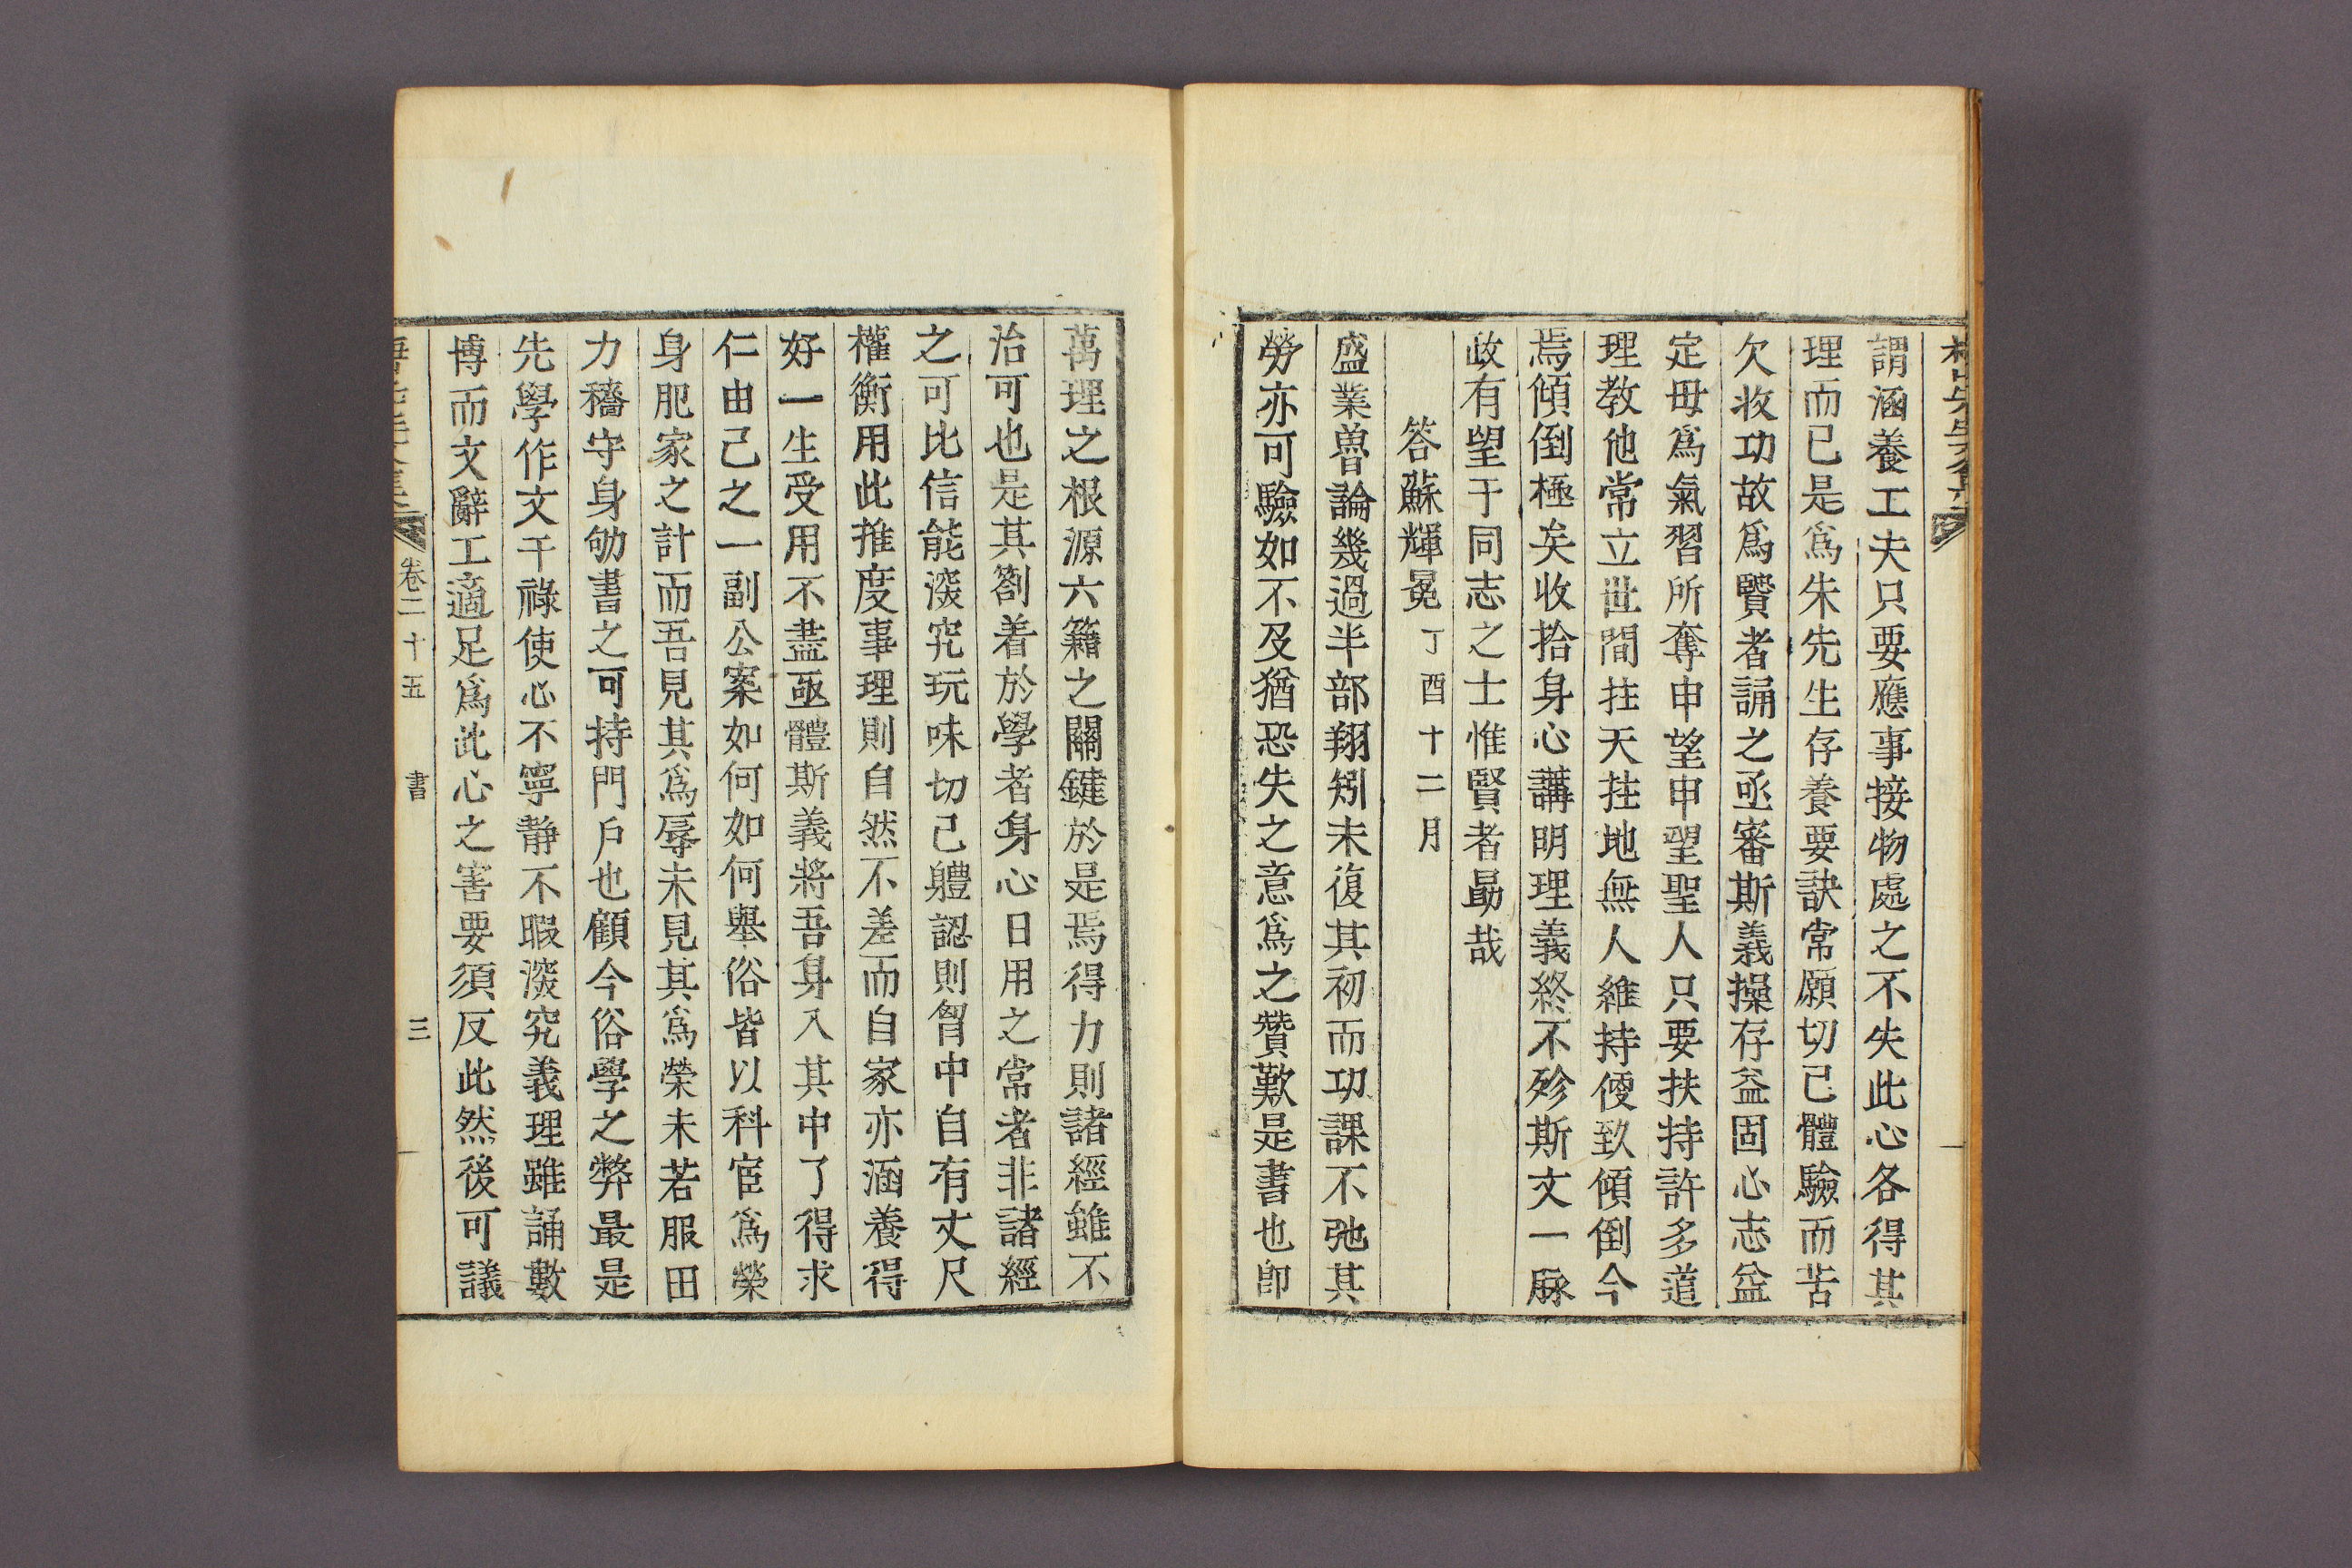 謂涵養工夫只要應事接物處之不失此心各得其
理而已是爲朱先生存養要訣常願切己體驗而苦
欠收功故爲賢者誦之亟審斯義操存益固心志益
定毋爲氣習所奪申望申望聖人只要扶持許多道
理教他常立世間拄天拄地無人維持便致傾倒今
焉傾倒極矣收拾身心講明理義終不殄斯文一脉
政有望于同志之士惟賢者勗哉
答蘇輝冕丁酉十二月
盛業魯論幾過半部翔矧未復其初而功課不弛其
勞亦可驗如不及猶恐失之意爲之贊歎是書也卽
萬理之根源六籍之關鍵於是焉得力則諸經雖不
治可也是其劄着於學者身心日用之常者非諸經
之可比信能深究玩味切己軆認則胷中自有丈尺
權衡用此推度事理則自然不差而自家亦涵養得
好一生受用不盡亟體斯義將吾身入其中了得求
仁由己之一副公案如何如何舉俗皆以科宦爲榮
身肥家之計而吾見其爲辱未見其爲榮未若服田
力穡守身劬書之可持門戶也顧今俗學之弊最是
先學作文干祿使心不寧靜不暇深究義理雖誦數
博而文辭工適足爲此心之害要須反此然後可議
卷二十五 書 三